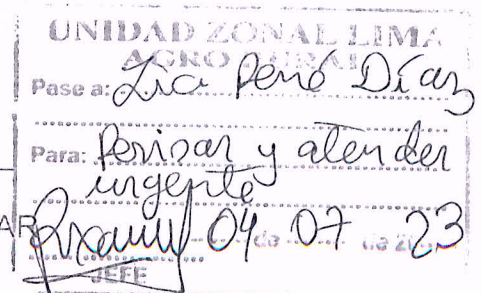 UNIDAD ZONAL LIMA
AGRO RURAL
Pase a: Lic. René Díaz
Para: Revisar y atender
urgente
AR
04 de 07 de 2023
JEFE